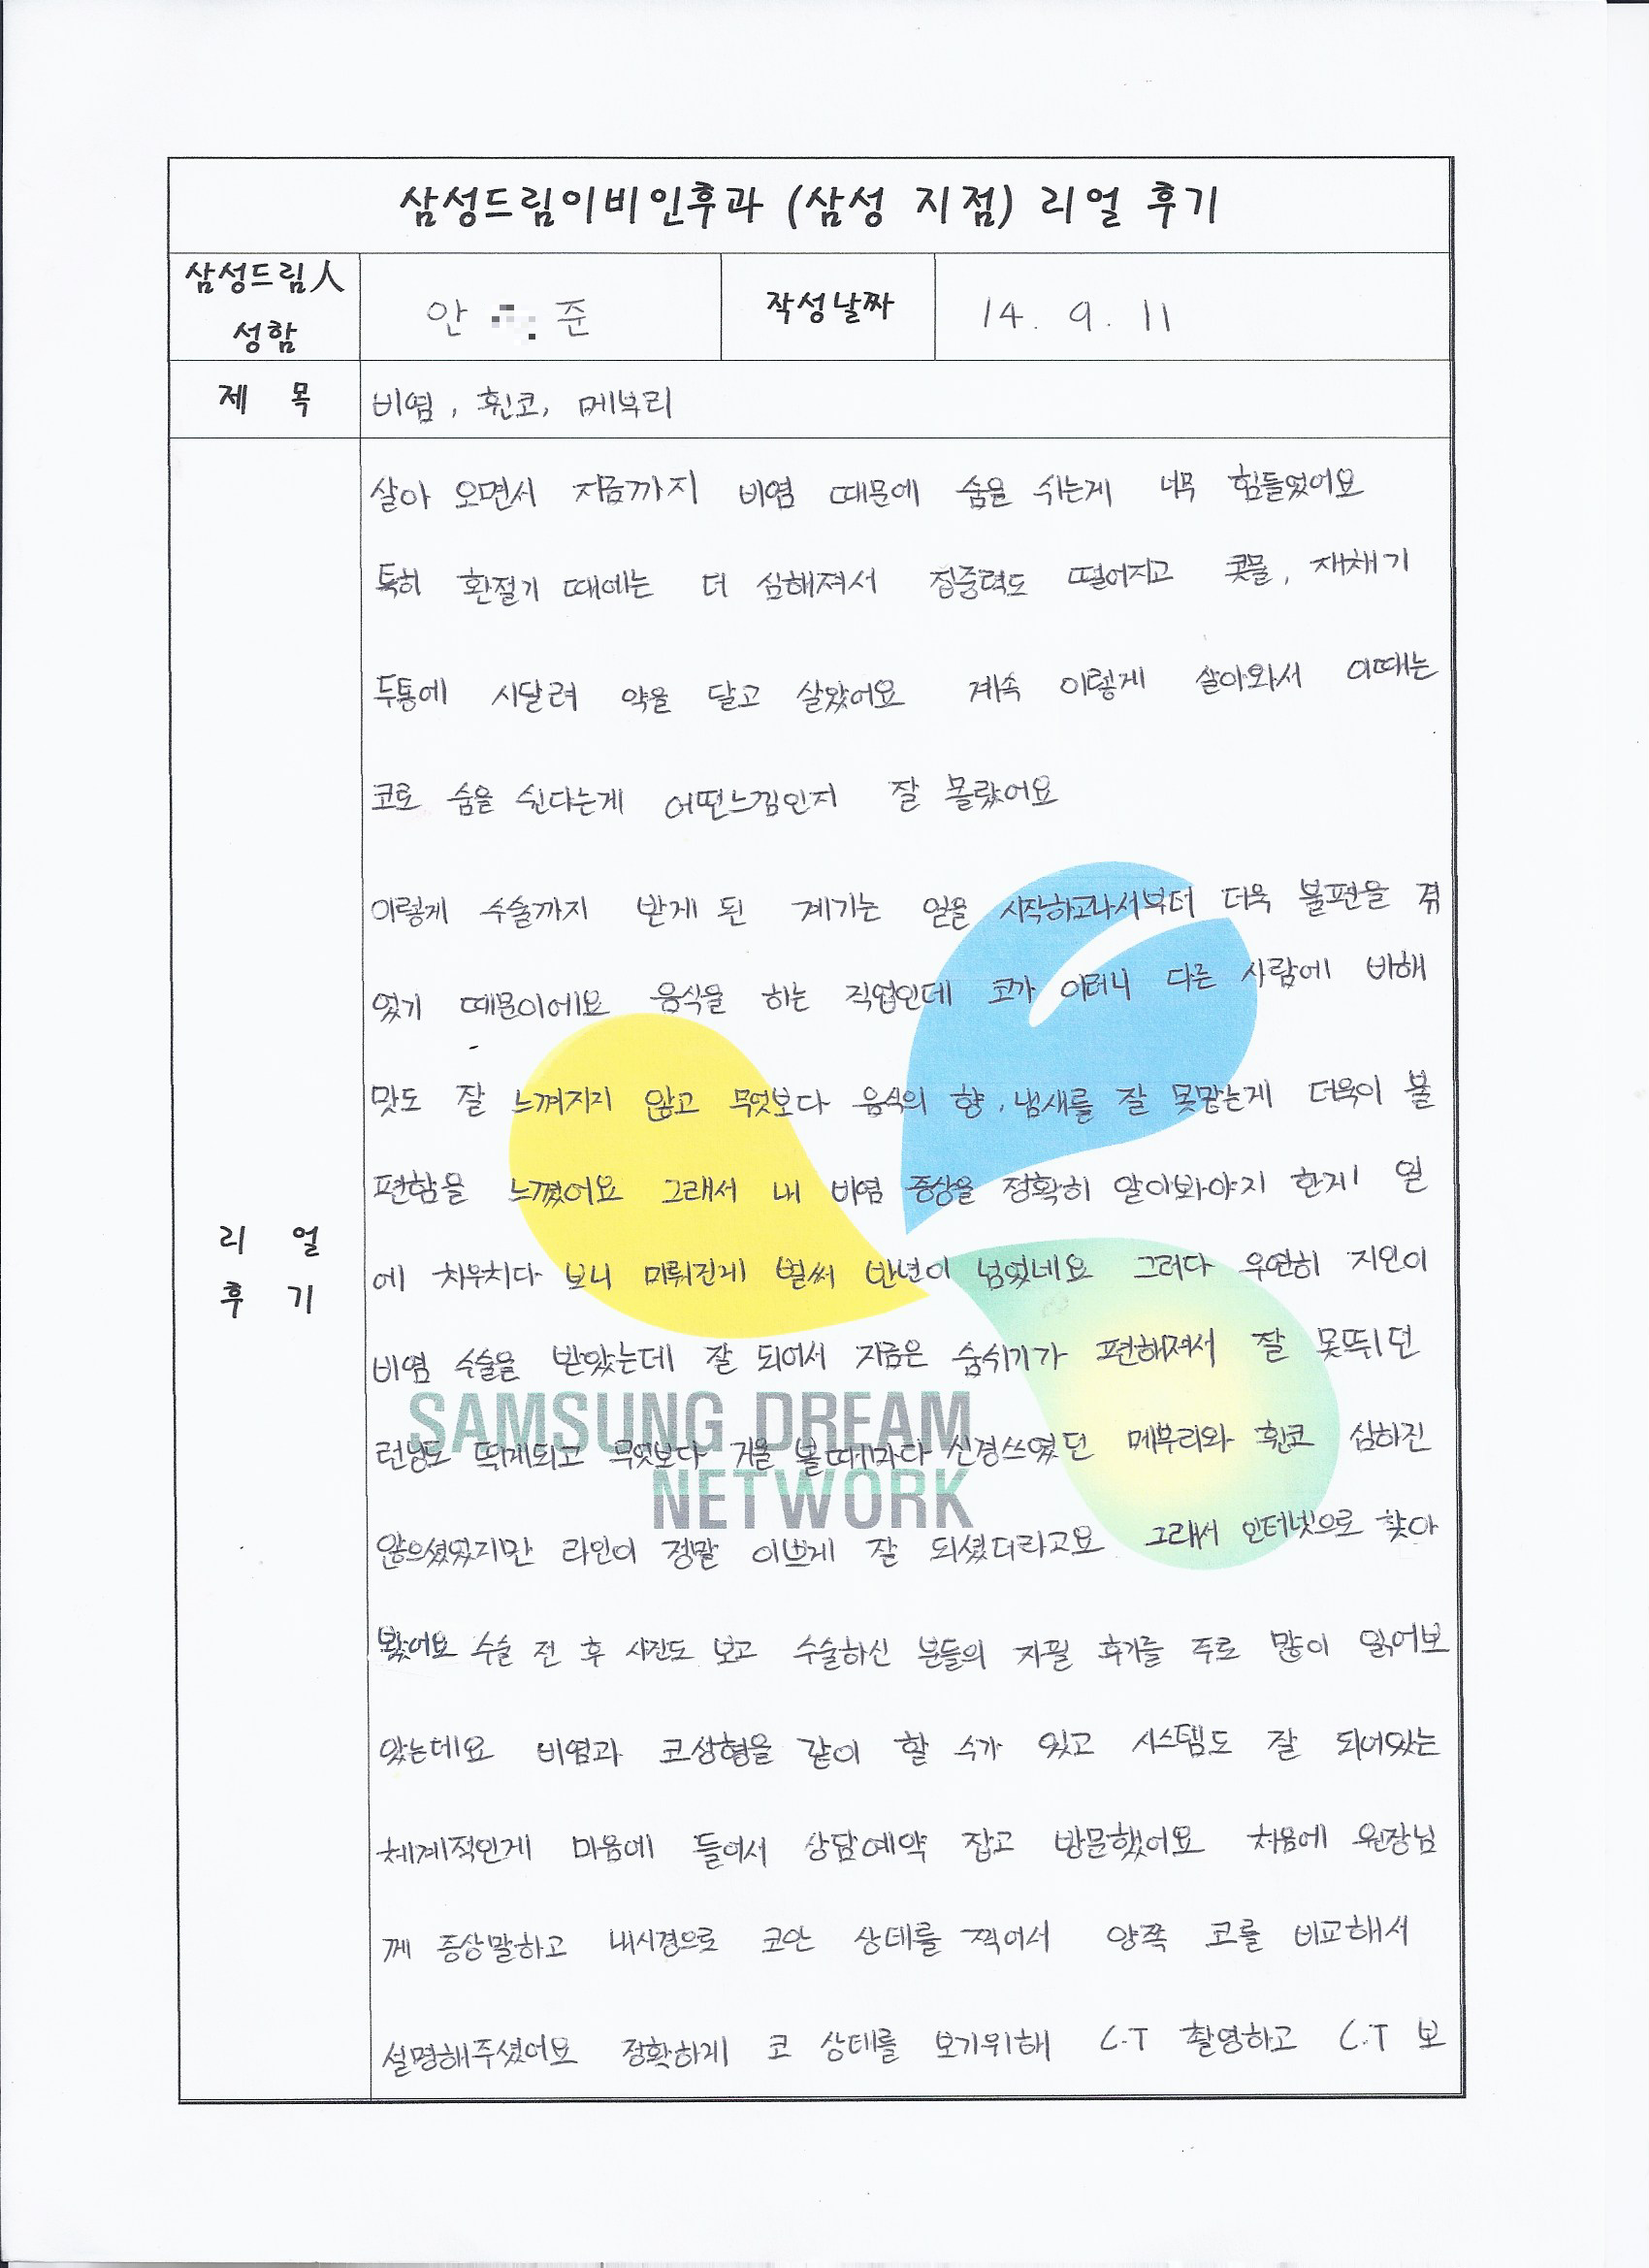 삼성드림이비인후과 (삼성 지점) 리얼 후기
삼성드림人 성함
안 준
작성날짜
14. 9. 11
제 목
비염, 휜코, 메부리
리 얼 후 기
살아 오면서 지금까지 비염 때문에 숨을 쉬는게 너무 힘들었어요
특히 환절기 때에는 더 심해져서 집중력도 떨어지고 콧물, 재채기
두통에 시달려 약을 달고 살았어요 계속 이렇게 살아와서 이때는
코로 숨을 쉰다는게 어떤느낌인지 잘 몰랐어요
이렇게 수술까지 받게 된 계기는 일을 시작하고나서부터 더욱 불편을 겪
었기 때문이에요 음식을 하는 직업인데 코가 이러니 다른 사람에 비해
맛도 잘 느껴지지 않고 무엇보다 음식의 향, 냄새를 잘 못맡는게 더욱이 불
편함을 느꼈어요 그래서 내 비염 증상을 정확히 알아봐야지 한게 일
에 치우치다 보니 미뤄진게 벌써 반년이 넘었네요 그러다 우연히 지인이
비염 수술을 받았는데 잘 되어서 지금은 숨쉬기가 편해져서 잘 못뛰던
런닝도 뛰게되고 무엇보다 거울 볼때마다 신경쓰였던 메부리와 휜코 심하진
않으셨었지만 라인이 정말 이쁘게 잘 되셨더라고요 그래서 인터넷으로 찾아
봤어요 수술 전 후 사진도 보고 수술하신 분들의 자필 후기를 주로 많이 읽어보
았는데요 비염과 코성형을 같이 할 수가 있고 시스템도 잘 되어있는
체계적인게 마음에 들어서 상담예약 잡고 방문했어요 처음에 원장님
께 증상말하고 내시경으로 코안 상태를 찍어서 양쪽 코를 비교해서
설명해주셨어요 정확하게 코 상태를 보기위해 C.T 촬영하고 C.T 보
SAMSUNG DREAM
NETWORK